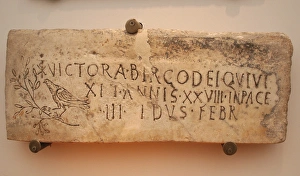 VICTORA·BIRGO DEI QVIVI
XIT ANNIS·XXVIII·INPACE
III·IDVS·FEBR